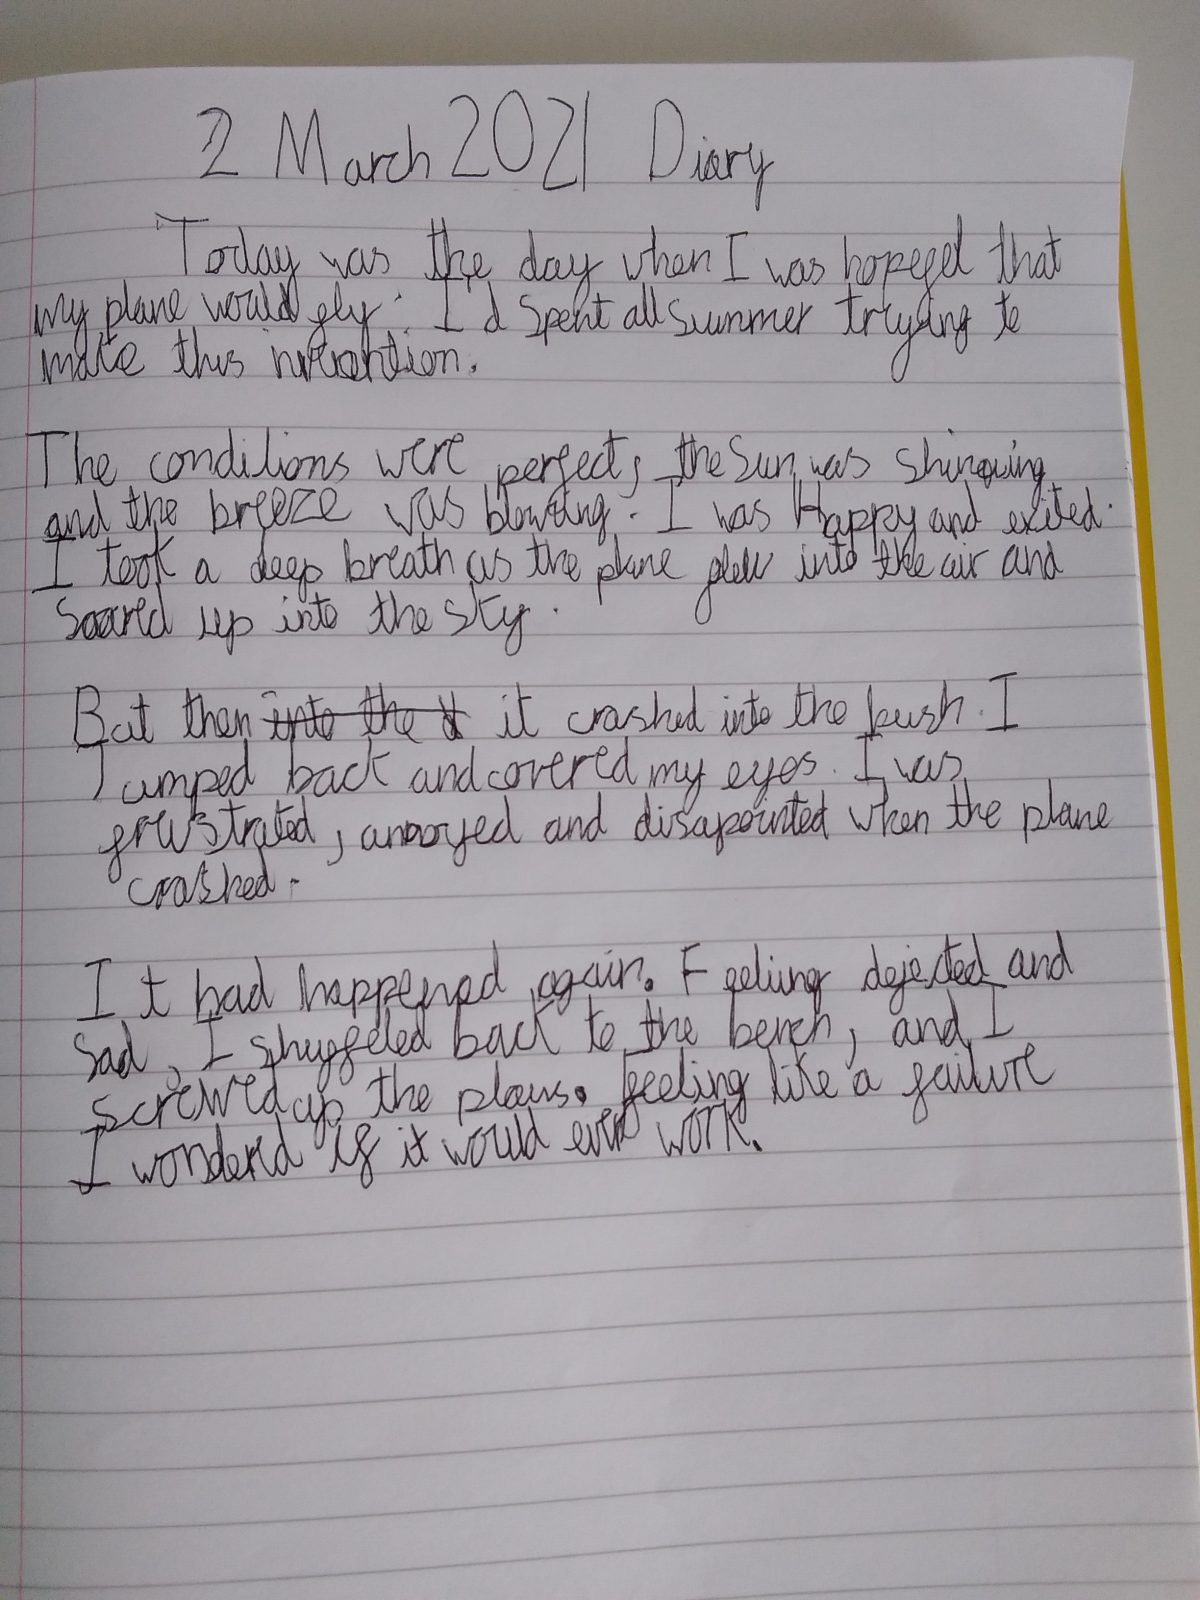 2 March 2021 Diary
Today was the day when I was hopefel that
my plane would fly. I'd spent all summer trying to
make this invention.
The conditions were perfect, the sun was
and the breeze was blowing. I was Happy and exited.
I took a deep breath as the plane flew into the air and
soared up into the sky.
But then into the it crashed into the bush. I
Jumped back and covered my eyes. I was
frustrated, annoyed and disapointed when the plane
crashed.
It had happened again. Feeling dejected and
sad, I back to the bench, and I
screwed up the plans. feeling like a failure
I wonderd if it would ever work.